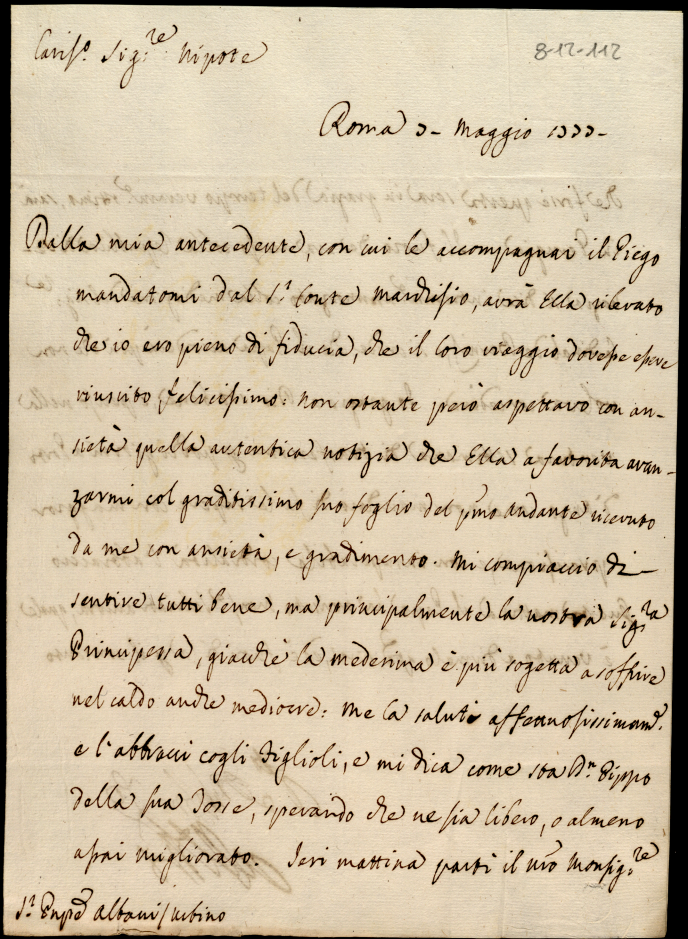 Cariss.o Sig.re Nipote
8-12-112
Roma 3- Maggio 1777-
Dalla mia antecedente, con cui le accompagnai il Piego
mandatomi dal S.r Conte Marchisio, avrà Ella rilevato
che io ero pieno di fiducia, che il loro viaggio dovesse essere
riuscito felicissimo: non ostante però aspettavo con an-
sietà quella autentica notizia che Ella a favorita avan-
zarmi col graditissimo suo foglio del p.mo andante ricevuto
da me con ansietà, e gradimento. Mi compiaccio di-
sentire tutti bene, ma principalmente la nostra Sig.ra
Principessa, giacchè la medesima è più sogetta a soffrire
nel caldo anche mediocre: Me la saluti affettuosissimam.e
e l'abbracci cogli Figlioli, e mi dica come sta D.n Pippo
della sua Tosse, sperando che ne sia libero, o almeno
assai migliorato. Ieri mattina partì il nro Monsig.re
S.r Enpe Albani / Urbino